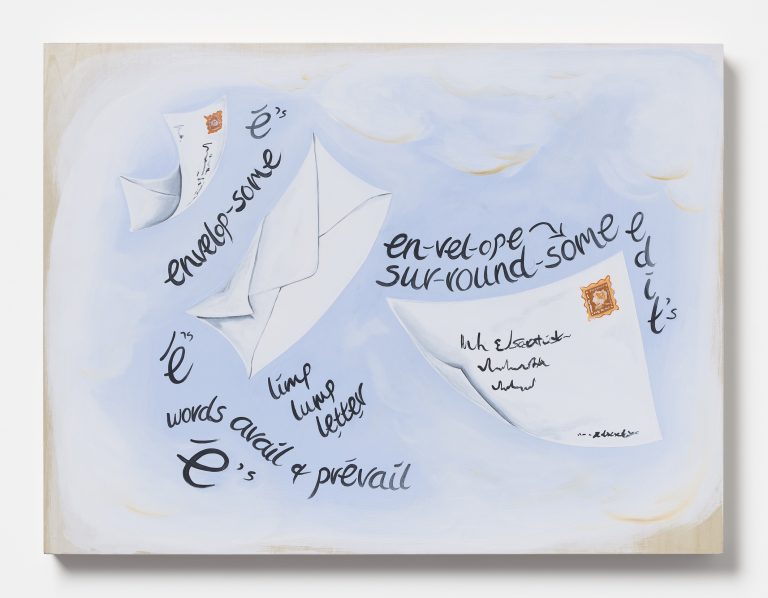 ē's
envelop-some
en-vel-ope
sur-round-some
edit's
é's
limp
lump
letter
words avail & prēvail
ē's